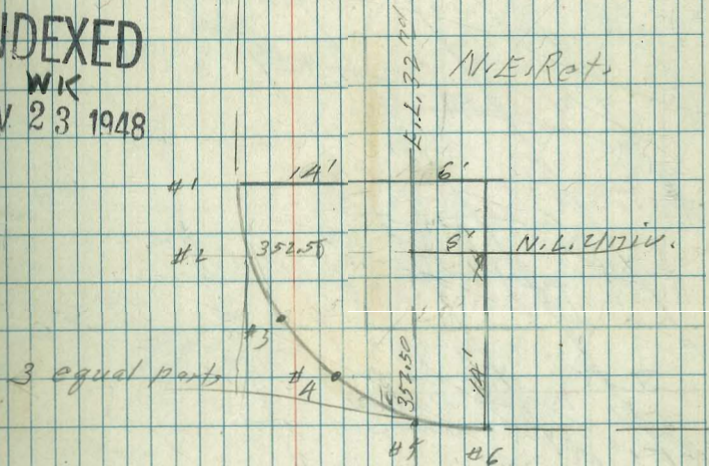 INDEXED
WK
V. 23 1948
E.L. 32nd
N.E. Ret.
#1
14'
6'
#2
352.58
5'
N.L. Univ.
#3
3 equal parts
#4
352.50
14'
#5
#6